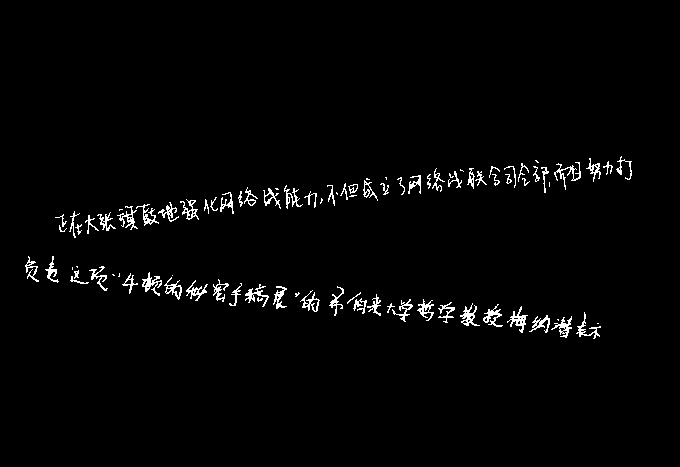 正在大张旗鼓地强化网络战能力,不但成立了网络战联合司令部,而且努力打
负责这项“牛顿的秘密手稿展”的希伯来大学哲学教授梅纳潜表示